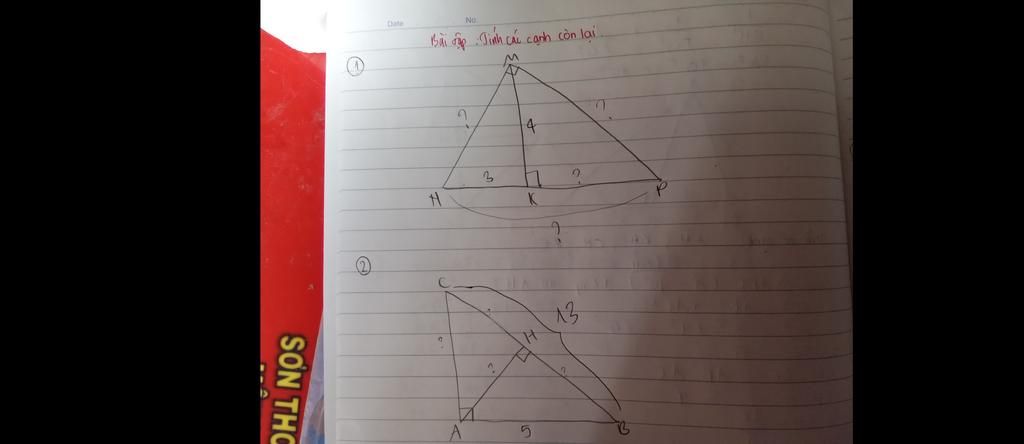 Date No
Bài tập : Tính các cạnh còn lại.
1
M
? 4 ?
3 ?
H K P
?
2
C
13
H
? ? ?
A 5 B
SƠN THO